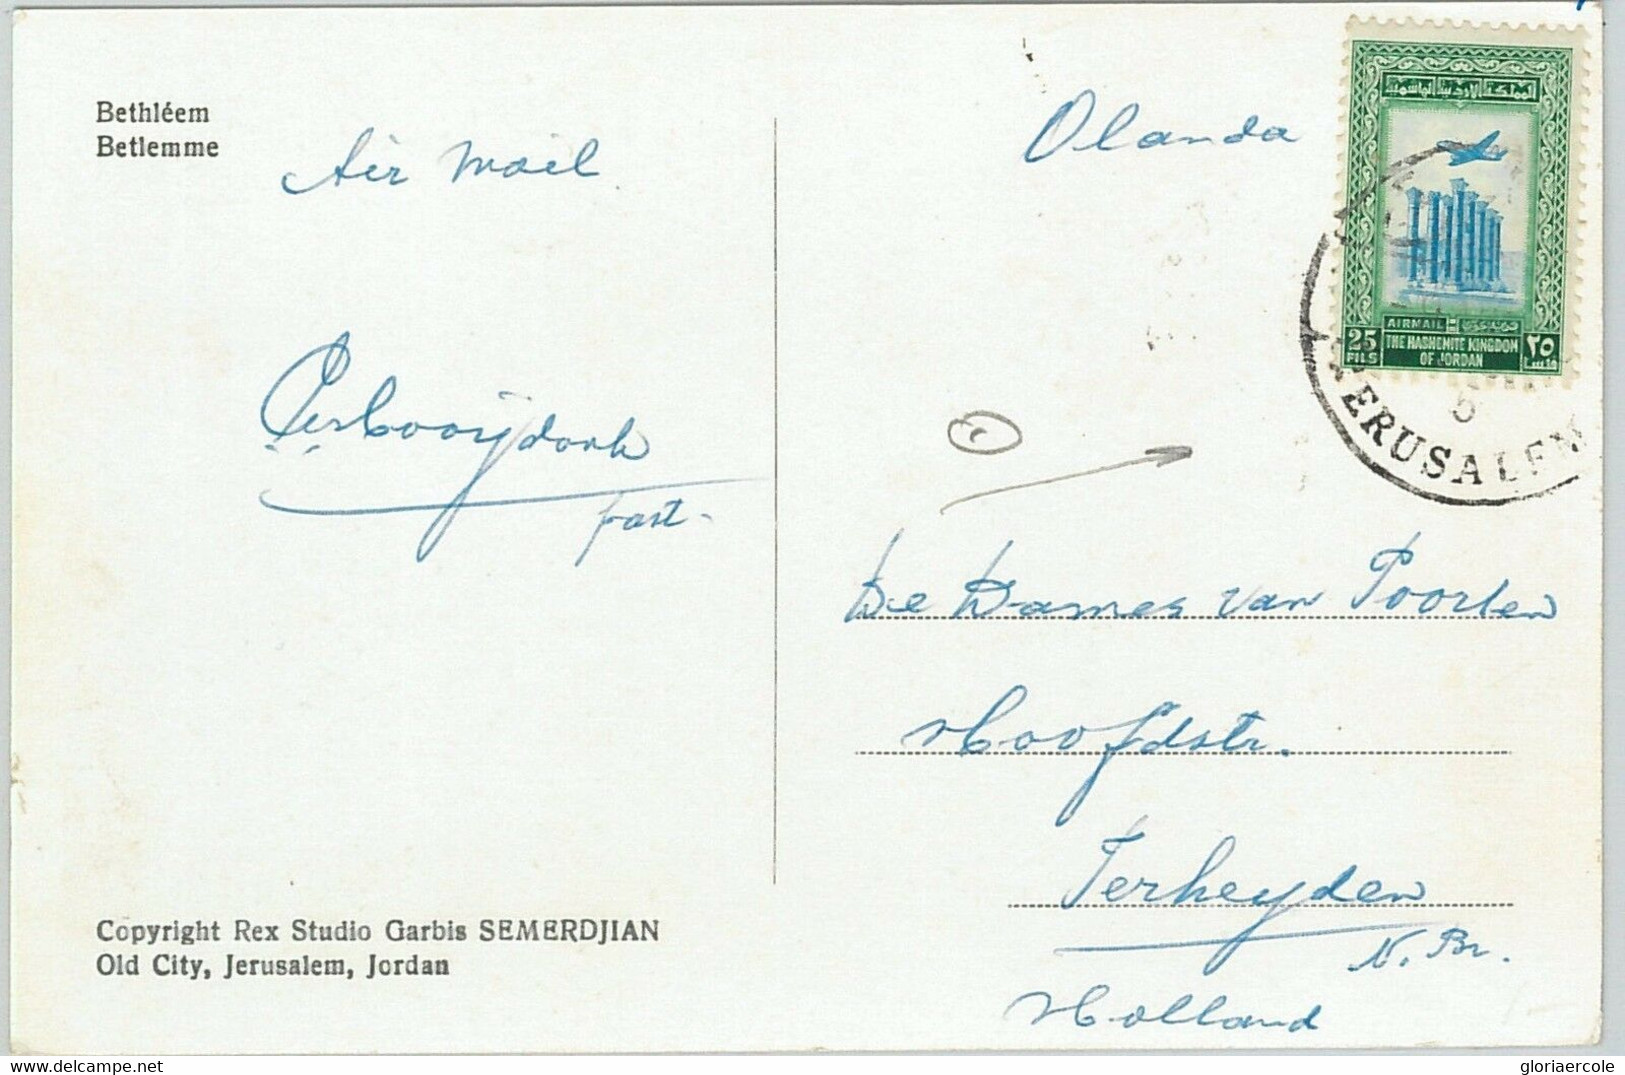 Bethléem
Betlemme
Air Mail
past.
Copyright Rex Studio Garbis SEMERDJIAN
Old City, Jerusalem, Jordan
Olanda
المملكة الاردنية الهاشمية
AIRMAIL
25 FILS
THE HASHEMITE KINGDOM
OF JORDAN
٢٥
5
JERUSALEM
De Dames van Poorten
Hoofdstr.
Terheyden
N. Br.
Holland
gloriaercole
delcampe.net